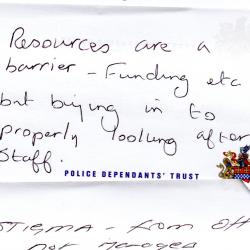 Resources are a
barrier - Funding etc
but buying in to
properly looking after
staff.
POLICE DEPENDANTS' TRUST
STIGMA - from
not managed